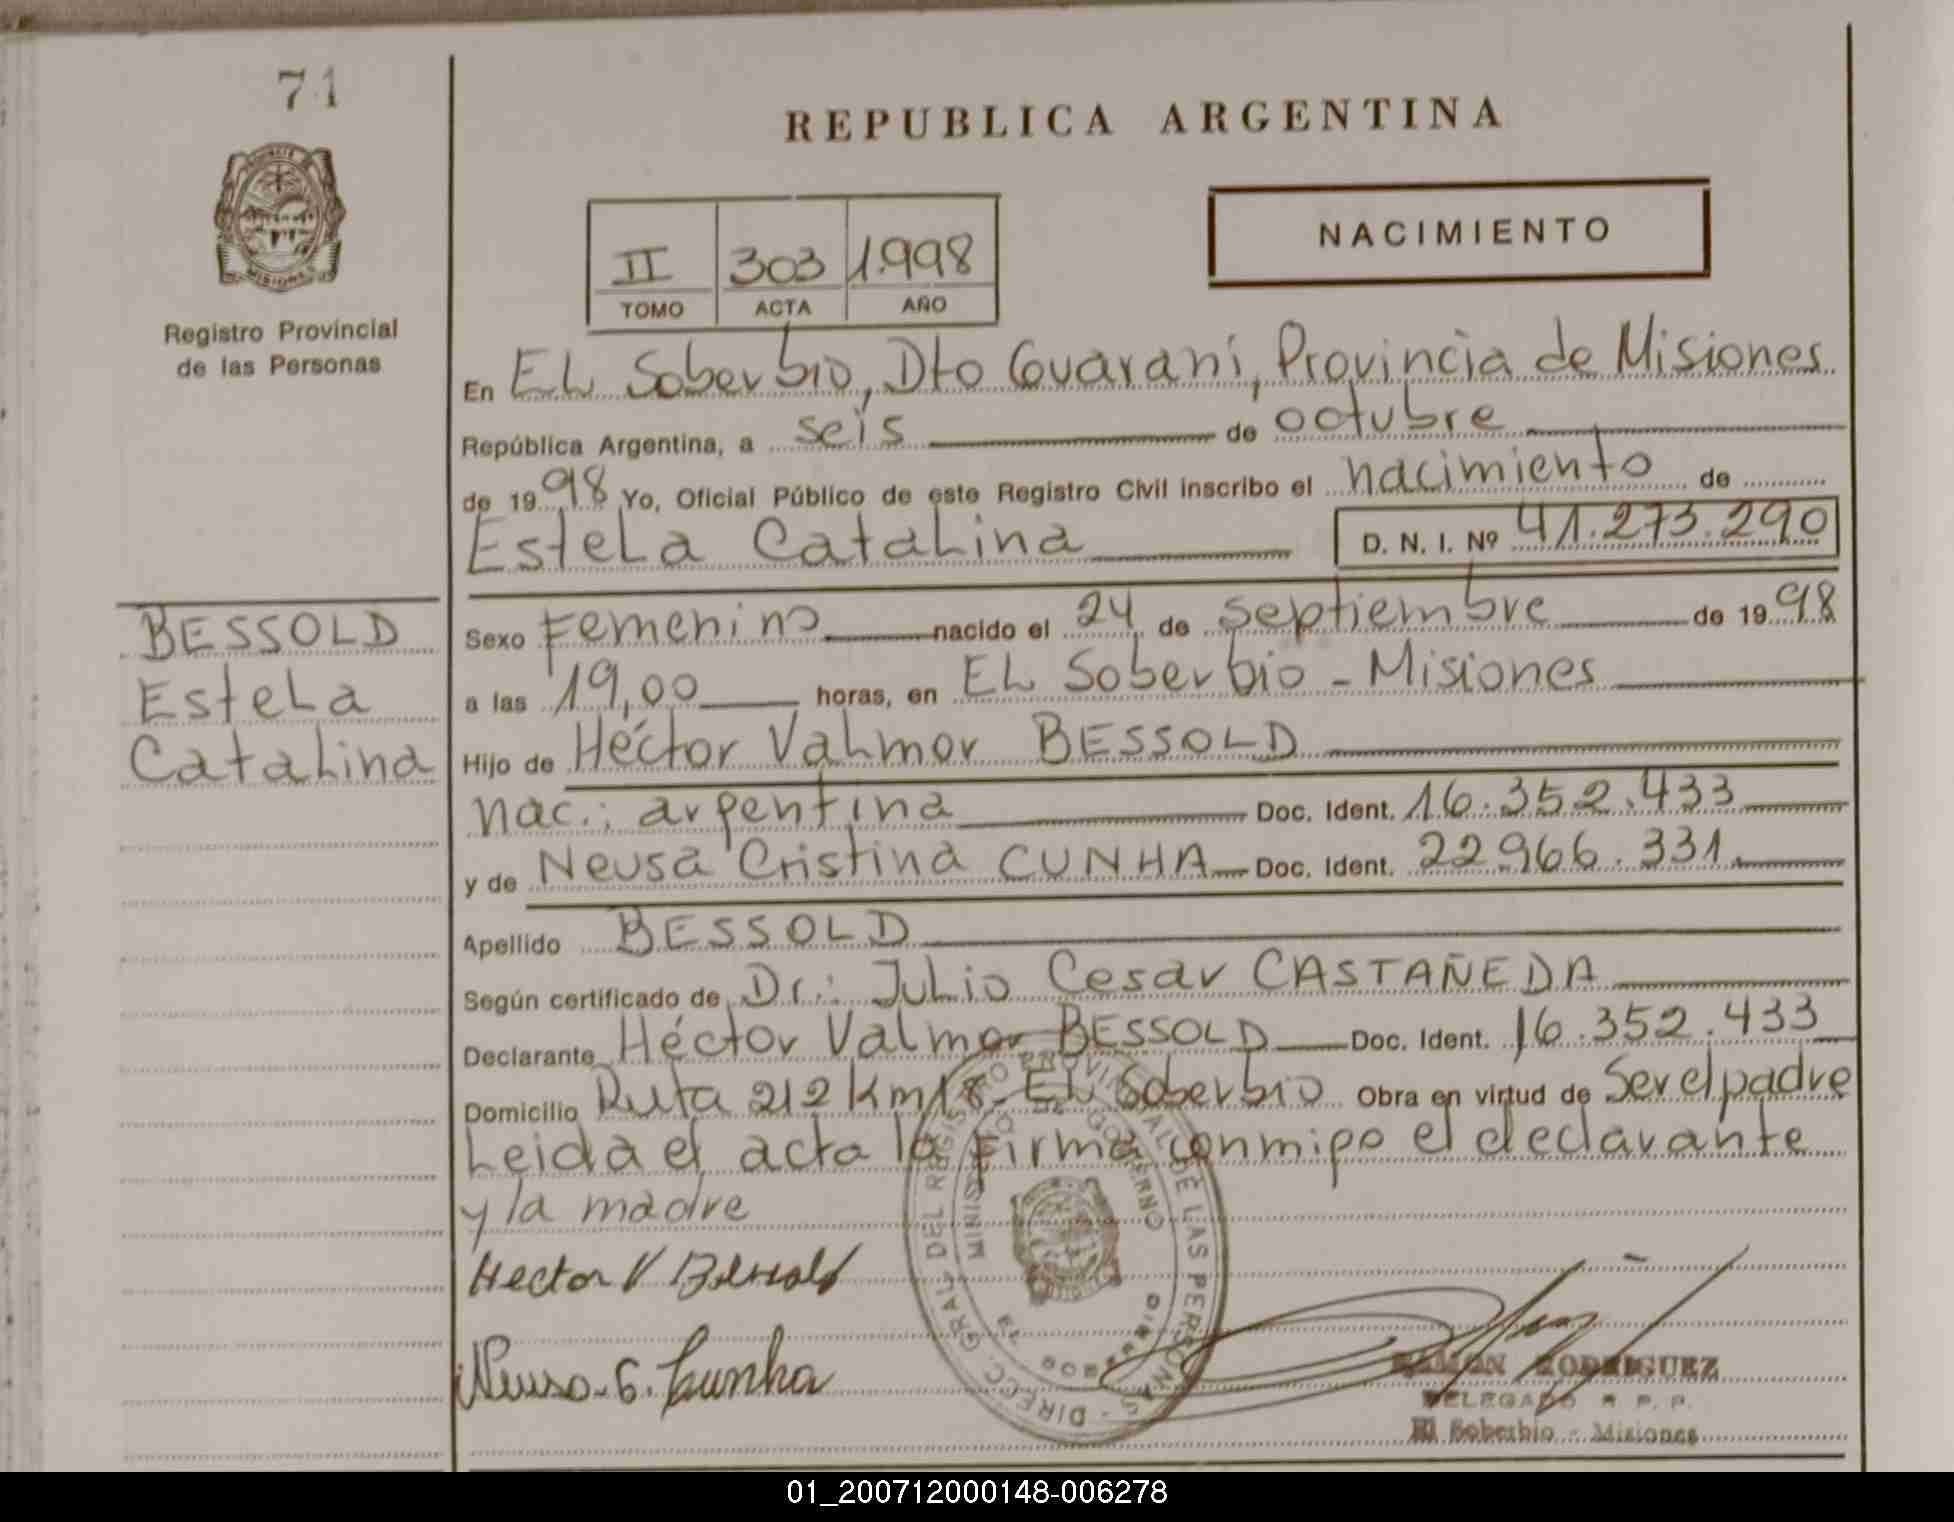 71
REPUBLICA ARGENTINA
NACIMIENTO
II 303 1.998
TOMO ACTA AÑO
MISIONES
Registro Provincial
de las Personas
En EL Soberbio, Dto Guaraní, Provincia de Misiones
República Argentina, a seis de octubre
de 1998 Yo, Oficial Público de este Registro Civil inscribo el nacimiento de
Estela Catalina D. N. I. Nº 41.273.290
BESSOLD
Estela
Catalina
Sexo Femenino nacido el 24 de septiembre de 1998
a las 19,00 horas, en EL Soberbio - Misiones
Hijo de Héctor Valmor BESSOLD
nac.: argentina Doc. Ident. 16.352.433
y de Neusa Cristina CUNHA Doc. Ident. 22966.331
Apellido BESSOLD
Según certificado de Dr.: Julio Cesar CASTAÑEDA
Declarante Héctor Valmor BESSOLD Doc. Ident. 16.352.433
Domicilio Ruta 212 Km 18 - EL Soberbio Obra en virtud de Ser el padre
Leida el acta la firma conmigo el declarante
y la madre
Hector V Bessold
Neusa. C. Cunha
DIRECC. GRAL. DEL REGISTRO PROVINCIAL DE LAS PERSONAS
GOBIERNO
RAMON RODRIGUEZ
DELEGADO R. P. P.
El Soberbio - Misiones
01_200712000148-006278